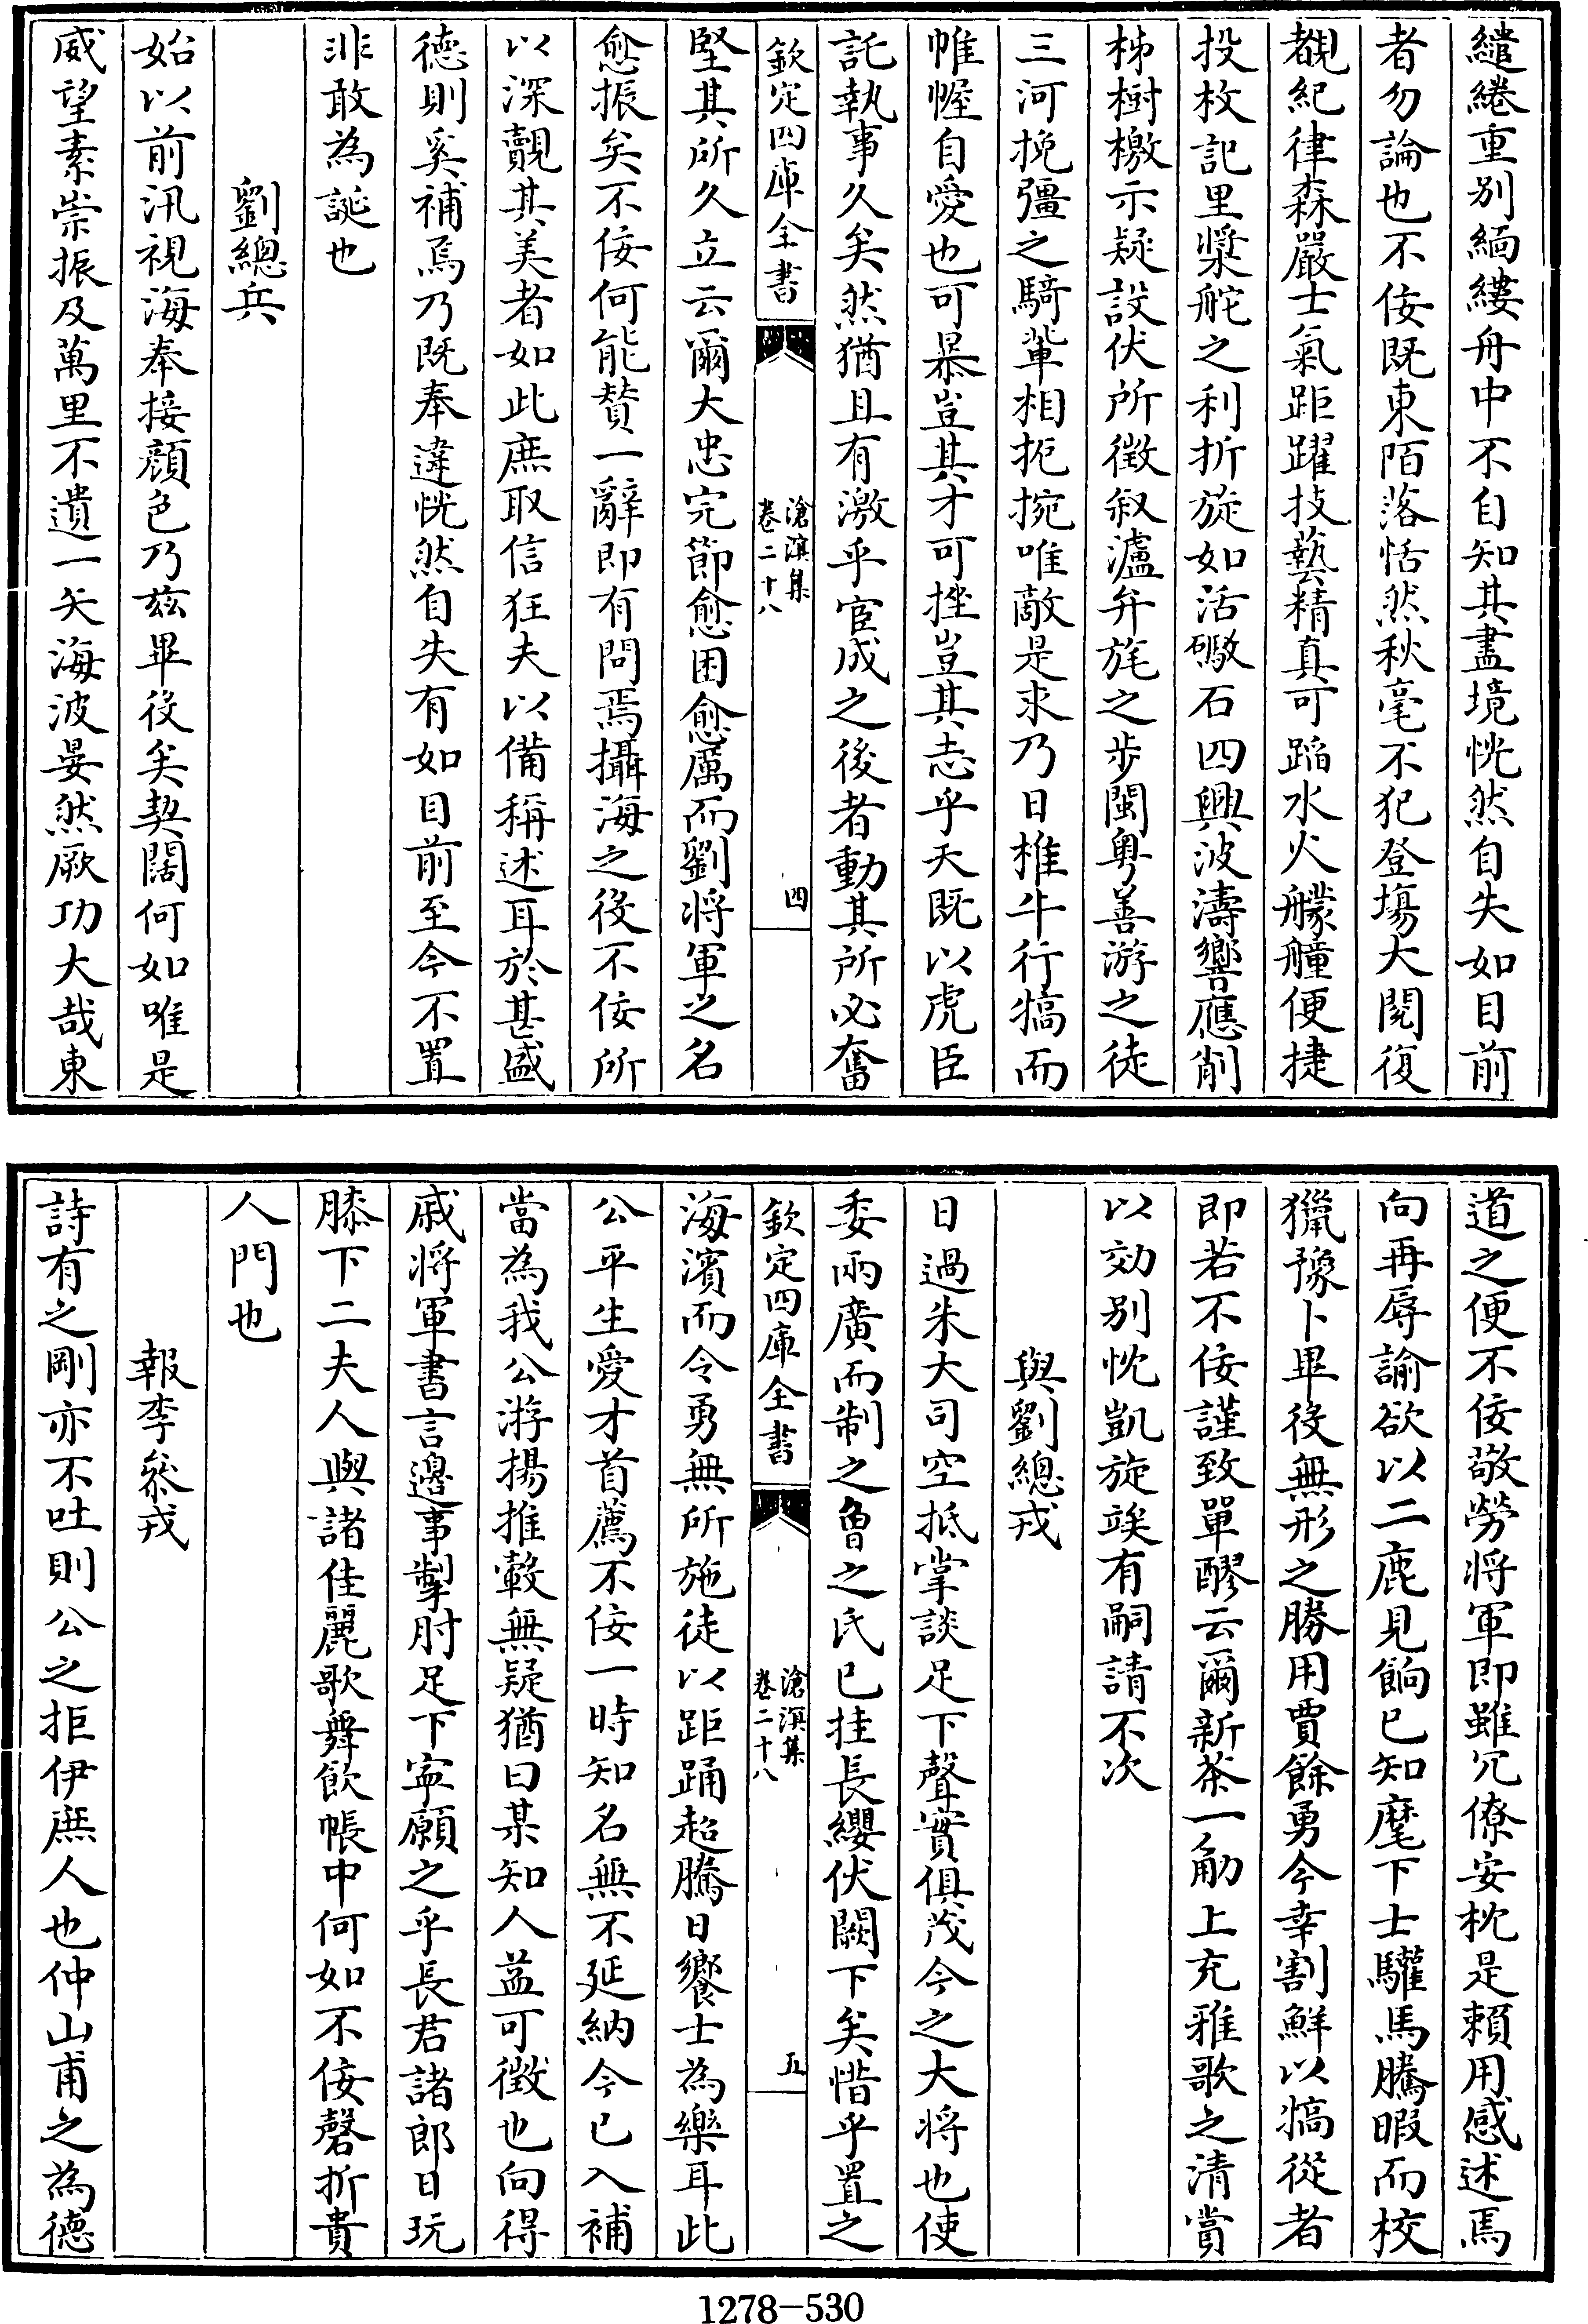 繾綣重别緬縷舟中不自知其盡境恍然自失如目前
者勿論也不佞既東陌落恬然秋毫不犯登塲大閱復
覩紀律森嚴士氣距躍技藝精真可蹈水火艨艟便捷
投枚記里槳舵之利折旋如活礮石四興波濤響應削
柹樹檄示疑設伏所徴叙瀘弁旄之步閩粤善游之徒
三河挽彊之騎輩相扼捥唯敵是求乃日椎牛行犒而
帷幄自愛也可暴豈其才可挫豈其志乎天既以虎臣
託執事久矣然猶且有激乎宦成之後者動其所必奮
欽定四庫全書
滄溟集
卷二十八
四
堅其所久立云爾大忠完節愈困愈厲而劉将軍之名
愈振矣不佞何能賛一辭即有問焉攝海之役不佞所
以深覿其美者如此庶取信狂夫以備稱述耳於甚盛
德則奚補焉乃既奉違恍然自失有如目前至今不置
非敢為誕也
劉總兵
始以前汛視海奉接顔色乃兹畢役矣契闊何如唯是
威望素崇振及萬里不遺一矢海波晏然厥功大哉東
道之便不佞敬勞将軍即雖冗僚安枕是頼用感述焉
向再辱諭欲以二鹿見餉已知麾下士驩馬騰暇而校
獵豫卜畢役無形之勝用賈餘勇今幸割鮮以犒從者
即若不佞謹致單醪云爾新茶一觔上充雅歌之清賞
以効别忱凱旋竢有嗣請不次
與劉總戎
日過朱大司空抵掌談足下聲實俱茂今之大将也使
委兩廣而制之魯之氏已挂長纓伏闕下矣惜乎置之
欽定四庫全書
滄溟集
卷二十八
五
海濱而令勇無所施徒以距踊超騰日饗士為樂耳此
公平生愛才首薦不佞一時知名無不延納今已入補
當為我公游揚推轂無疑猶曰某知人益可徴也向得
戚将軍書言邊事掣肘足下寧願之乎長君諸郎日玩
膝下二夫人與諸佳麗歌舞飲帳中何如不佞磬折貴
人門也
報李叅戎
詩有之剛亦不吐則公之拒伊庶人也仲山甫之為德
1278-530